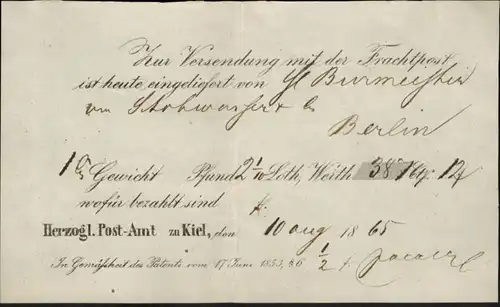 Zur Versendung mit der Frachtpost
ist heute eingeliefert von H Burmeister
Berlin
Gewicht Pfund 2 1/10 Loth, Werth
wofür bezahlt sind
Herzogl. Post-Amt zu Kiel, den 10 aug 1865
In Gemäßheit des Patents vom 17 Juni 1853, § 6 1/2